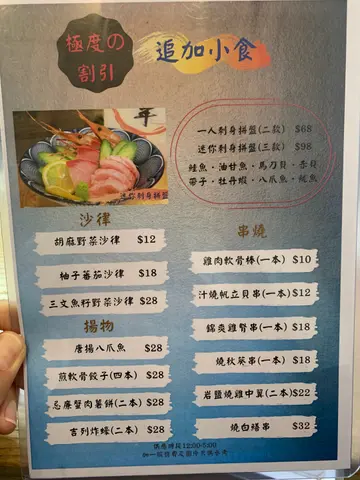 極度の
割引
追加小食
一人刺身拼盤(二款) $68
迷你刺身拼盤(三款) $98
鮭魚・油甘魚・馬刀貝・赤貝
帶子・牡丹蝦・八爪魚・魷魚
迷你刺身拼盤
沙律
胡麻野菜沙律 $12
柚子蕃茄沙律 $18
三文魚籽野菜沙律 $28
揚物
唐揚八爪魚 $28
煎軟骨餃子(四本) $28
忌廉蟹肉薯餅(二本) $28
吉列炸蠔(二本) $28
串燒
雞肉軟骨棒(一本) $10
汁燒帆立貝串(一本) $12
錦爽雞腎串(一本) $18
燒秋葵串(一本) $18
岩鹽燒雞中翼(二本) $22
燒白鱔串 $32
供應時段12:00-5:00